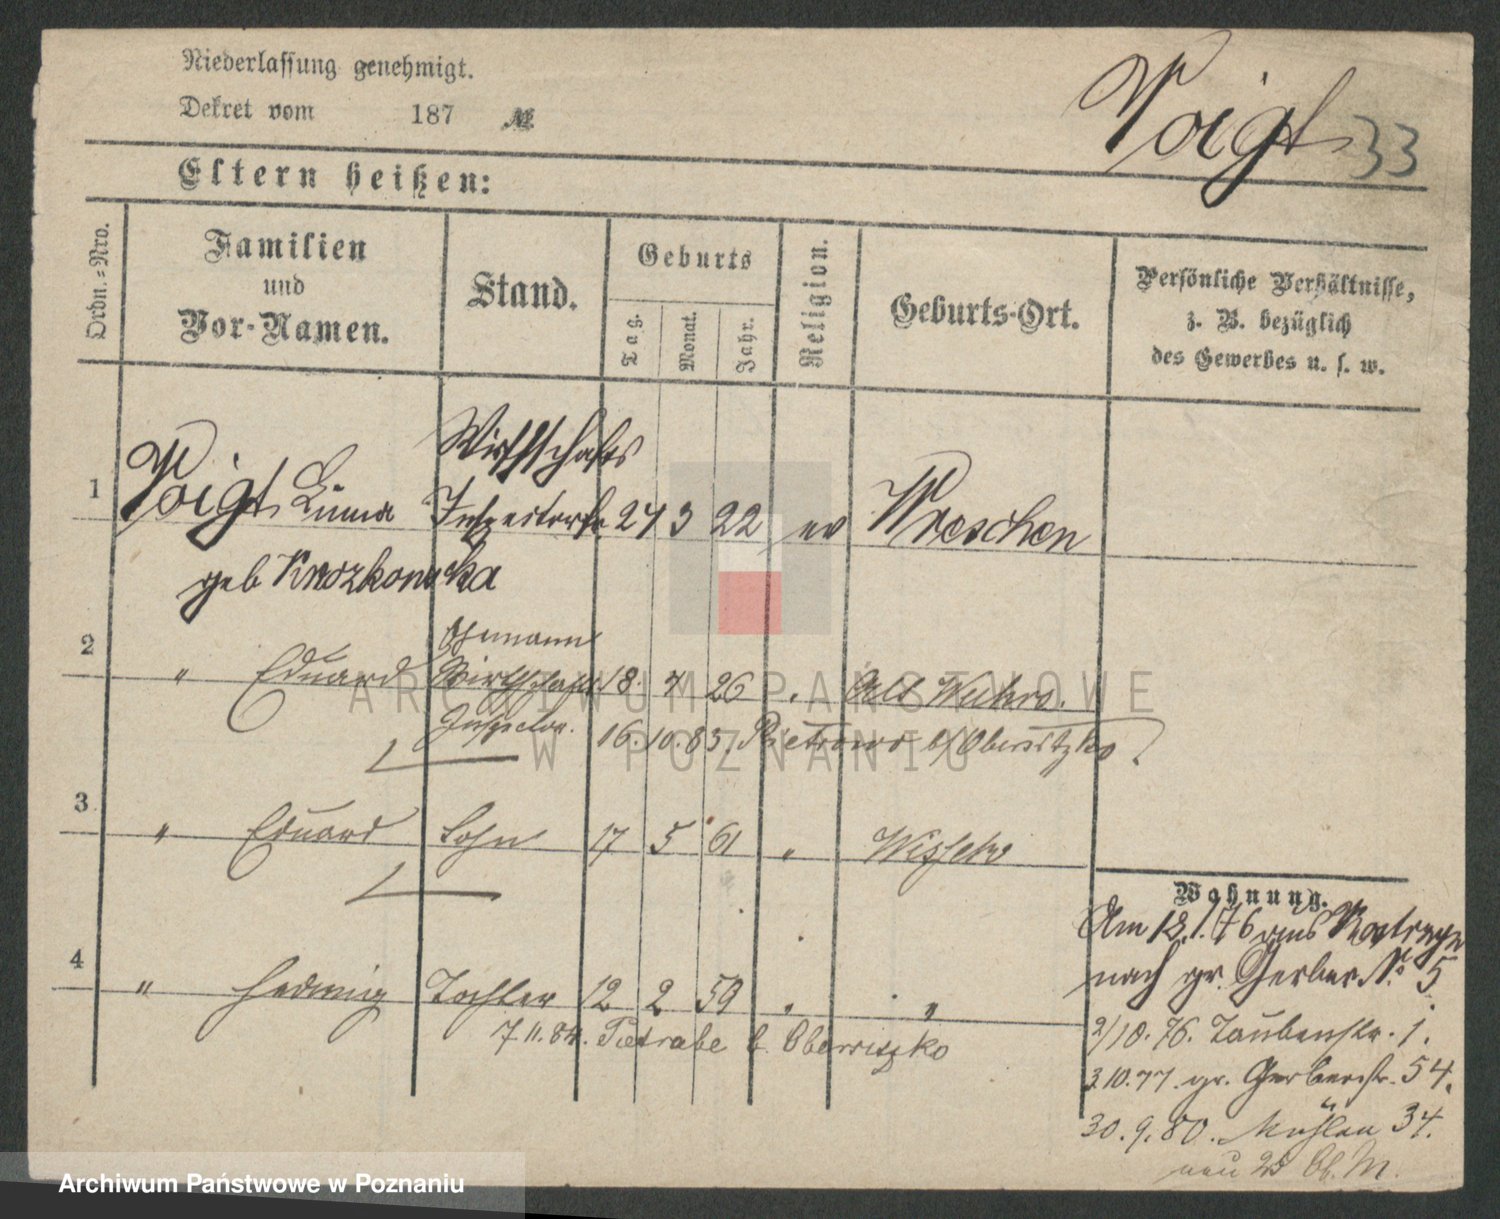 Niederlassung genehmigt.
Dekret vom 187 №
Voigt 33
Eltern heißen:
Ordn.=Nro.
Familien
und
Vor-Namen.
Stand.
Geburts
Tag.
Monat.
Jahr.
Religion.
Geburts-Ort.
Persönliche Verhältnisse,
z. B. bezüglich
des Gewerbes u. s. w.
Wirthschafts
1 Voigt 24 3 22 ev Wreschen
geb
2 Ehemann
" Eduard Wirthschafts 18. 7 26 " Alt
Inspector.
16. 10. 85. b/ Obersitzko
3 " Eduard Sohn 17 5 61 "
Wohnung.
Am 12.1.76 aus
nach gr. Gerber № 5
4 " Hedwig Tochter 12 2 59 " "
7. 11. 84. b. Obersitzko
2/10. 76. Taubenstr. 1.
3.10.77. gr. Gerberstr. 54.
30. 9. 80. Mühlen 34.
neu
ARCHIWUM PAŃSTWOWE
W POZNANIU
Archiwum Państwowe w Poznaniu